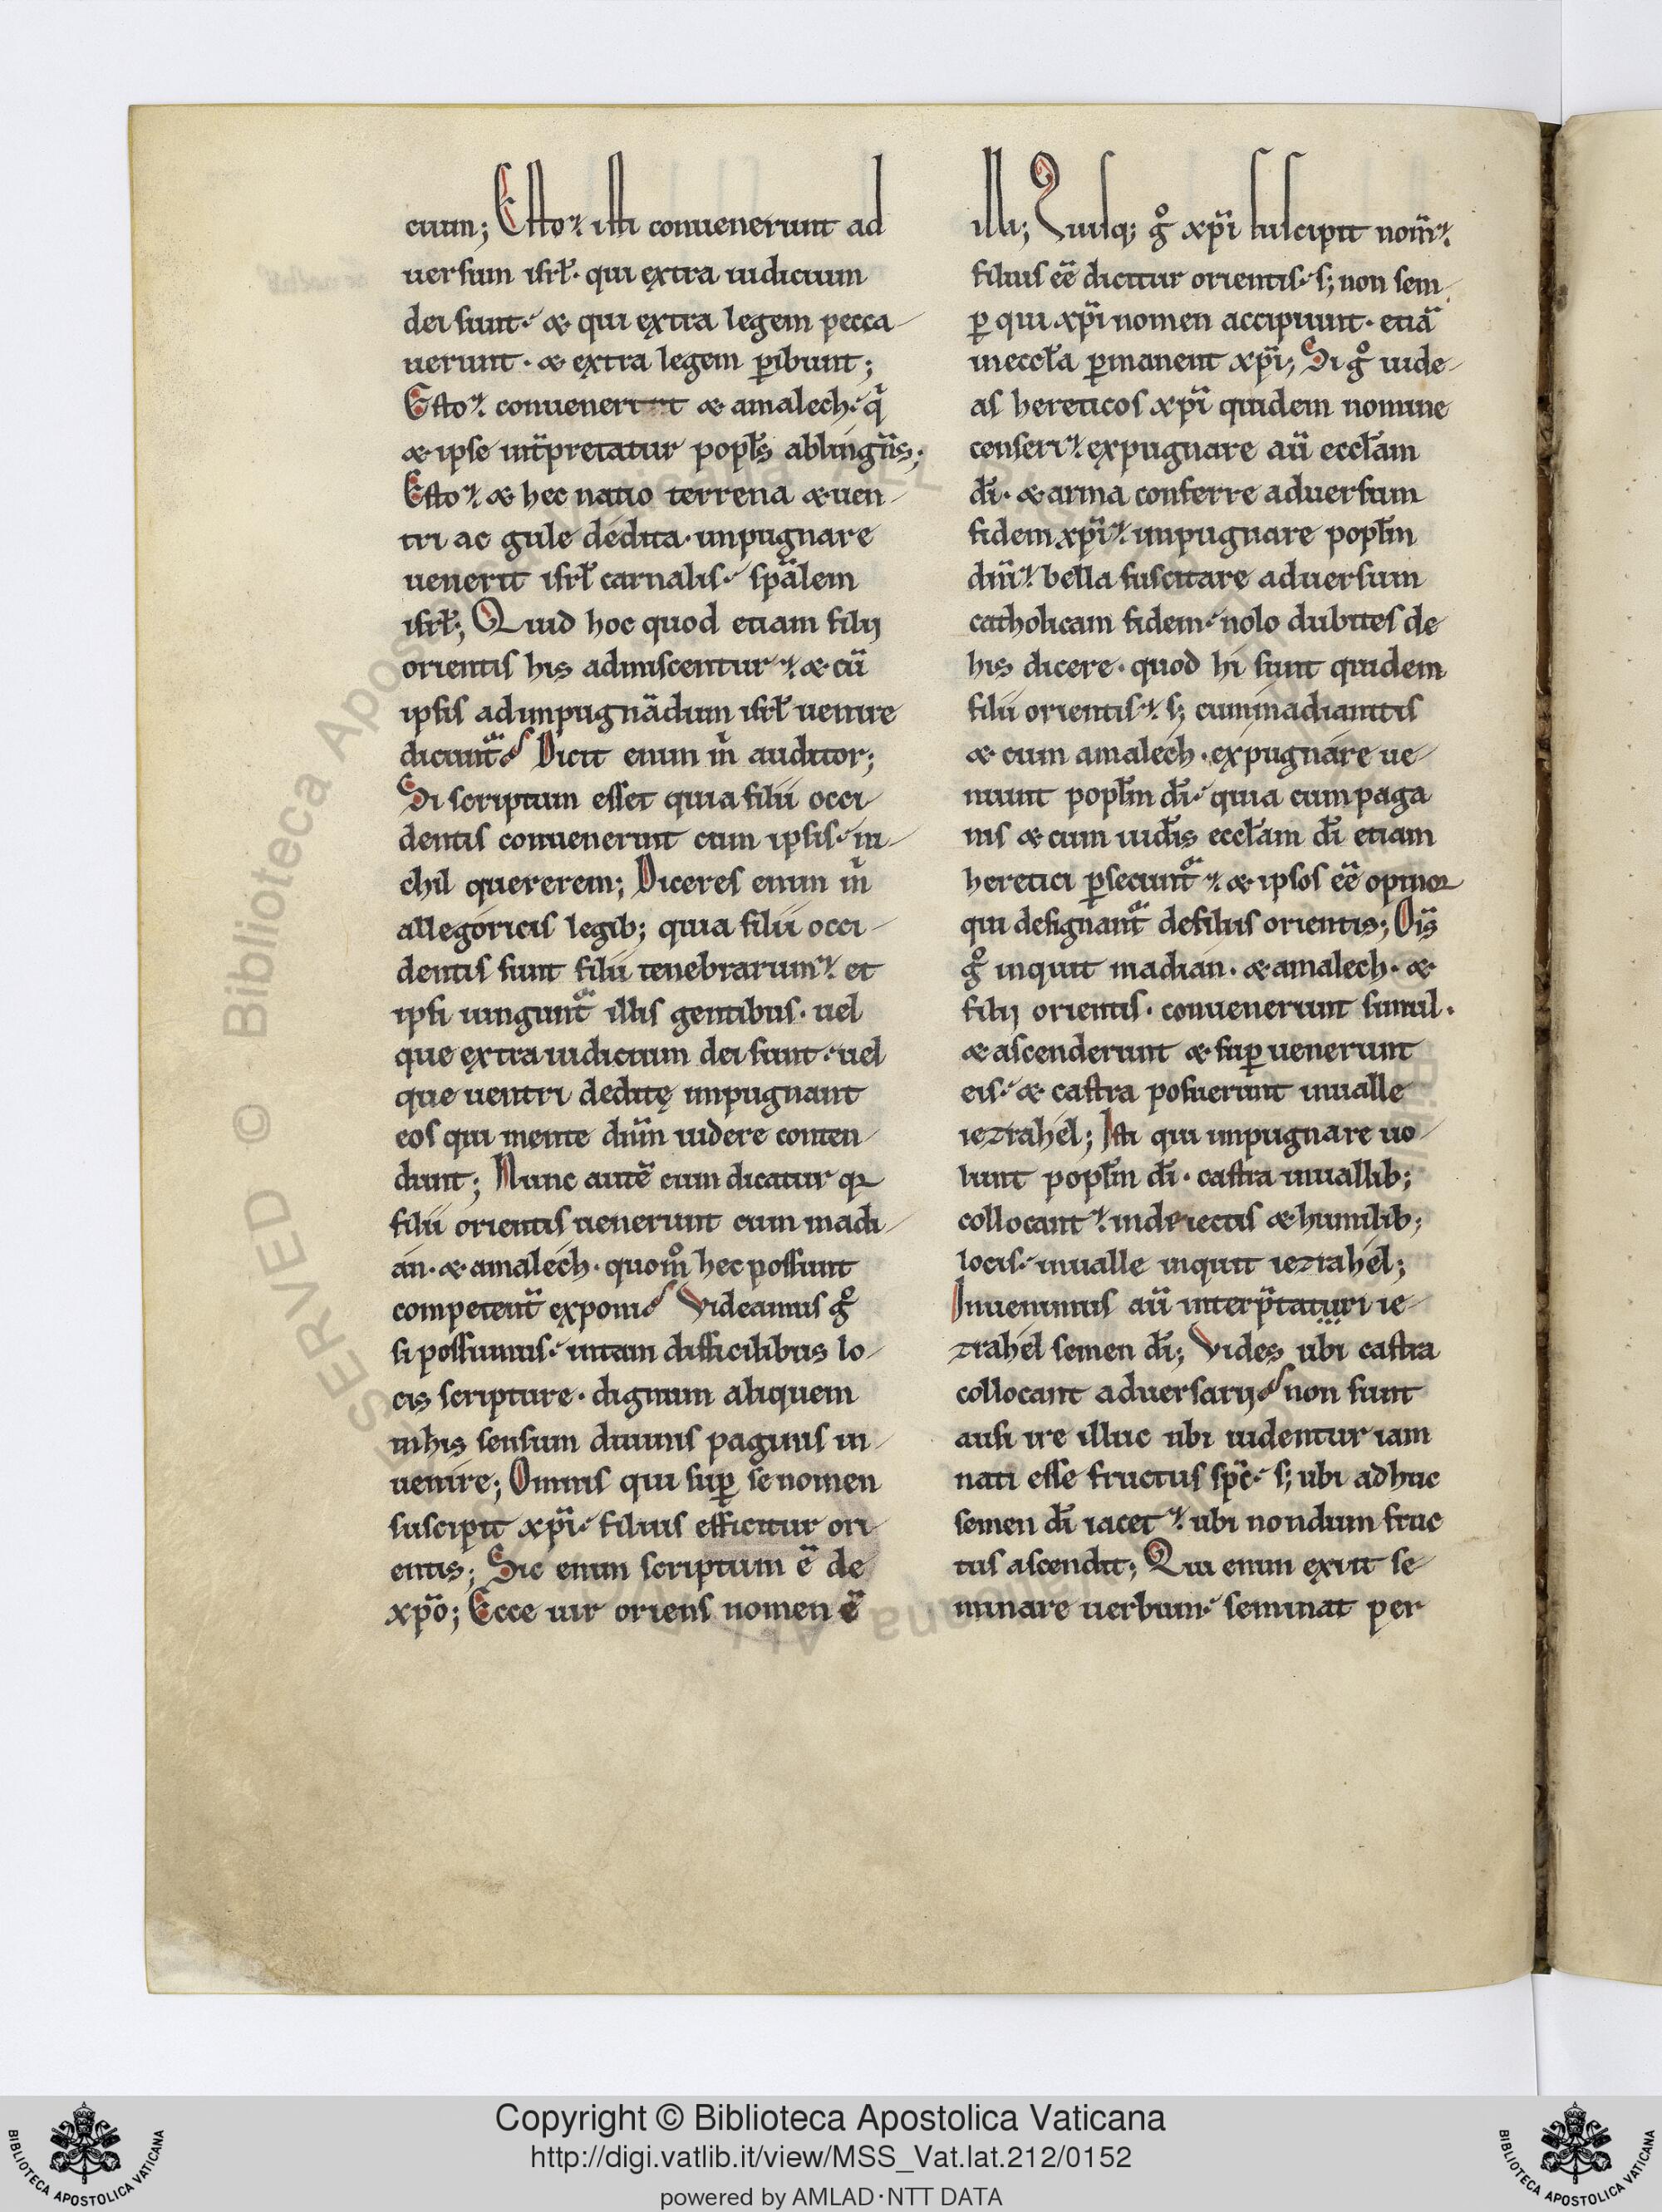 cium; Esto ? isti conuenerunt ad
uersum isrł· qui extra iudicium
dei sunt· & qui extra legem pecca-
uerunt· & extra legem ꝑibunt;
Esto ? conuenerit & amalech· qͥ
& ipse int̄pretatur popl̄s ablingens;
Esto ? & hec natio terrena & uen-
tri ac gule dedita· inpugnare
uenerit isrł carnalis· sp̄alem
isrł; Quid hoc quod etiam filij
orientis his admiscentur ? & cū
ipsis ad inpugnādum isrł uenire
dicunt᷑ ? Dicit enim m̍ auditor;
Si scriptum esset quia filii occi-
dentis conuenerunt cum ipsis· ni-
chil quererem; Diceres enim m̍
allegoricis legib; quia filii occi-
dentis sunt filii tenebrarum ? et
ipsi iungunt᷑ illis gentibus· uel
que extra iudicium dei sunt· uel
que uentri deditę inpugnant
eos qui mente dn̄m uidere conten-
dunt; Nunc autē cum dicatur ꝙ
filii orientis uenerunt cum madi-
an· & amalech· quom̊ hec possunt
competent̄ exponi ? Videamus g̊
si possumus· intam difficilibus lo-
cis scripture· dignum aliquem
inhis sensum diuinis paginis in-
uenire; Omnis qui suꝑ se nomen
suscipit xp̄i· filius efficitur ori-
entis; Sic enim scriptum ē de
xp̄o; Ecce uir oriens nomen ē
illi; Quisq; g̊ xp̄i suscipit nom̄ ?
filius eē dicitur orientis· s; non sem-
ꝑ qui xp̄i nomen accipiunt· etiā
ineccl̄a ꝑmanent xp̄i; Si g̊ uide-
as hereticos xp̄i quidem nomine
censeri ? expugnare aū eccl̄am
dī· & arma conferre aduersum
fidem xp̄i ? inpugnare popl̄m
dn̄i ? bella suscitare aduersum
catholicam fidem· nolo dubites de
his dicere· quod hi sunt quidem
filii orientis ? s; cum madianitis
& cum amalech· expugnare ue-
niunt popl̄m dī· quia cum paga
nis & cum iudeis eccl̄am dī etiam
heretici ꝑsecunt᷑ ? & ipsos eē opinor
qui designant᷑ defiliis orientis; Oīs
g̊ inquit madian· & amalech· &
filij orientis· conuenerunt simul·
& ascenderunt & suꝑ uenerunt
eis· & castra posuerunt inualle
iezrahel; Isti qui inpugnare uo-
lunt popl̄m dī· castra inuallib;
collocant ? indeiectis & humilib;
locis· inualle inquit iezrahel;
Inuenimus aū interp̄taturi ie-
zrahel semen dī; Vides ubi castra
collocant aduersarij ? non sunt
ausi ire illuc ubi uidentur iam
nati esse fructus sp̄c· s; ubi adhuc
semen dī iacet ? ubi nondum fruc
tus ascendit; Qui enim exiit se-
minare uerbum· seminat per
Copyright © Biblioteca Apostolica Vaticana
http://digi.vatlib.it/view/MSS_Vat.lat.212/0152
powered by AMLAD·NTT DATA
BIBLIOTECA APOSTOLICA VATICANA
BIBLIOTECA APOSTOLICA VATICANA